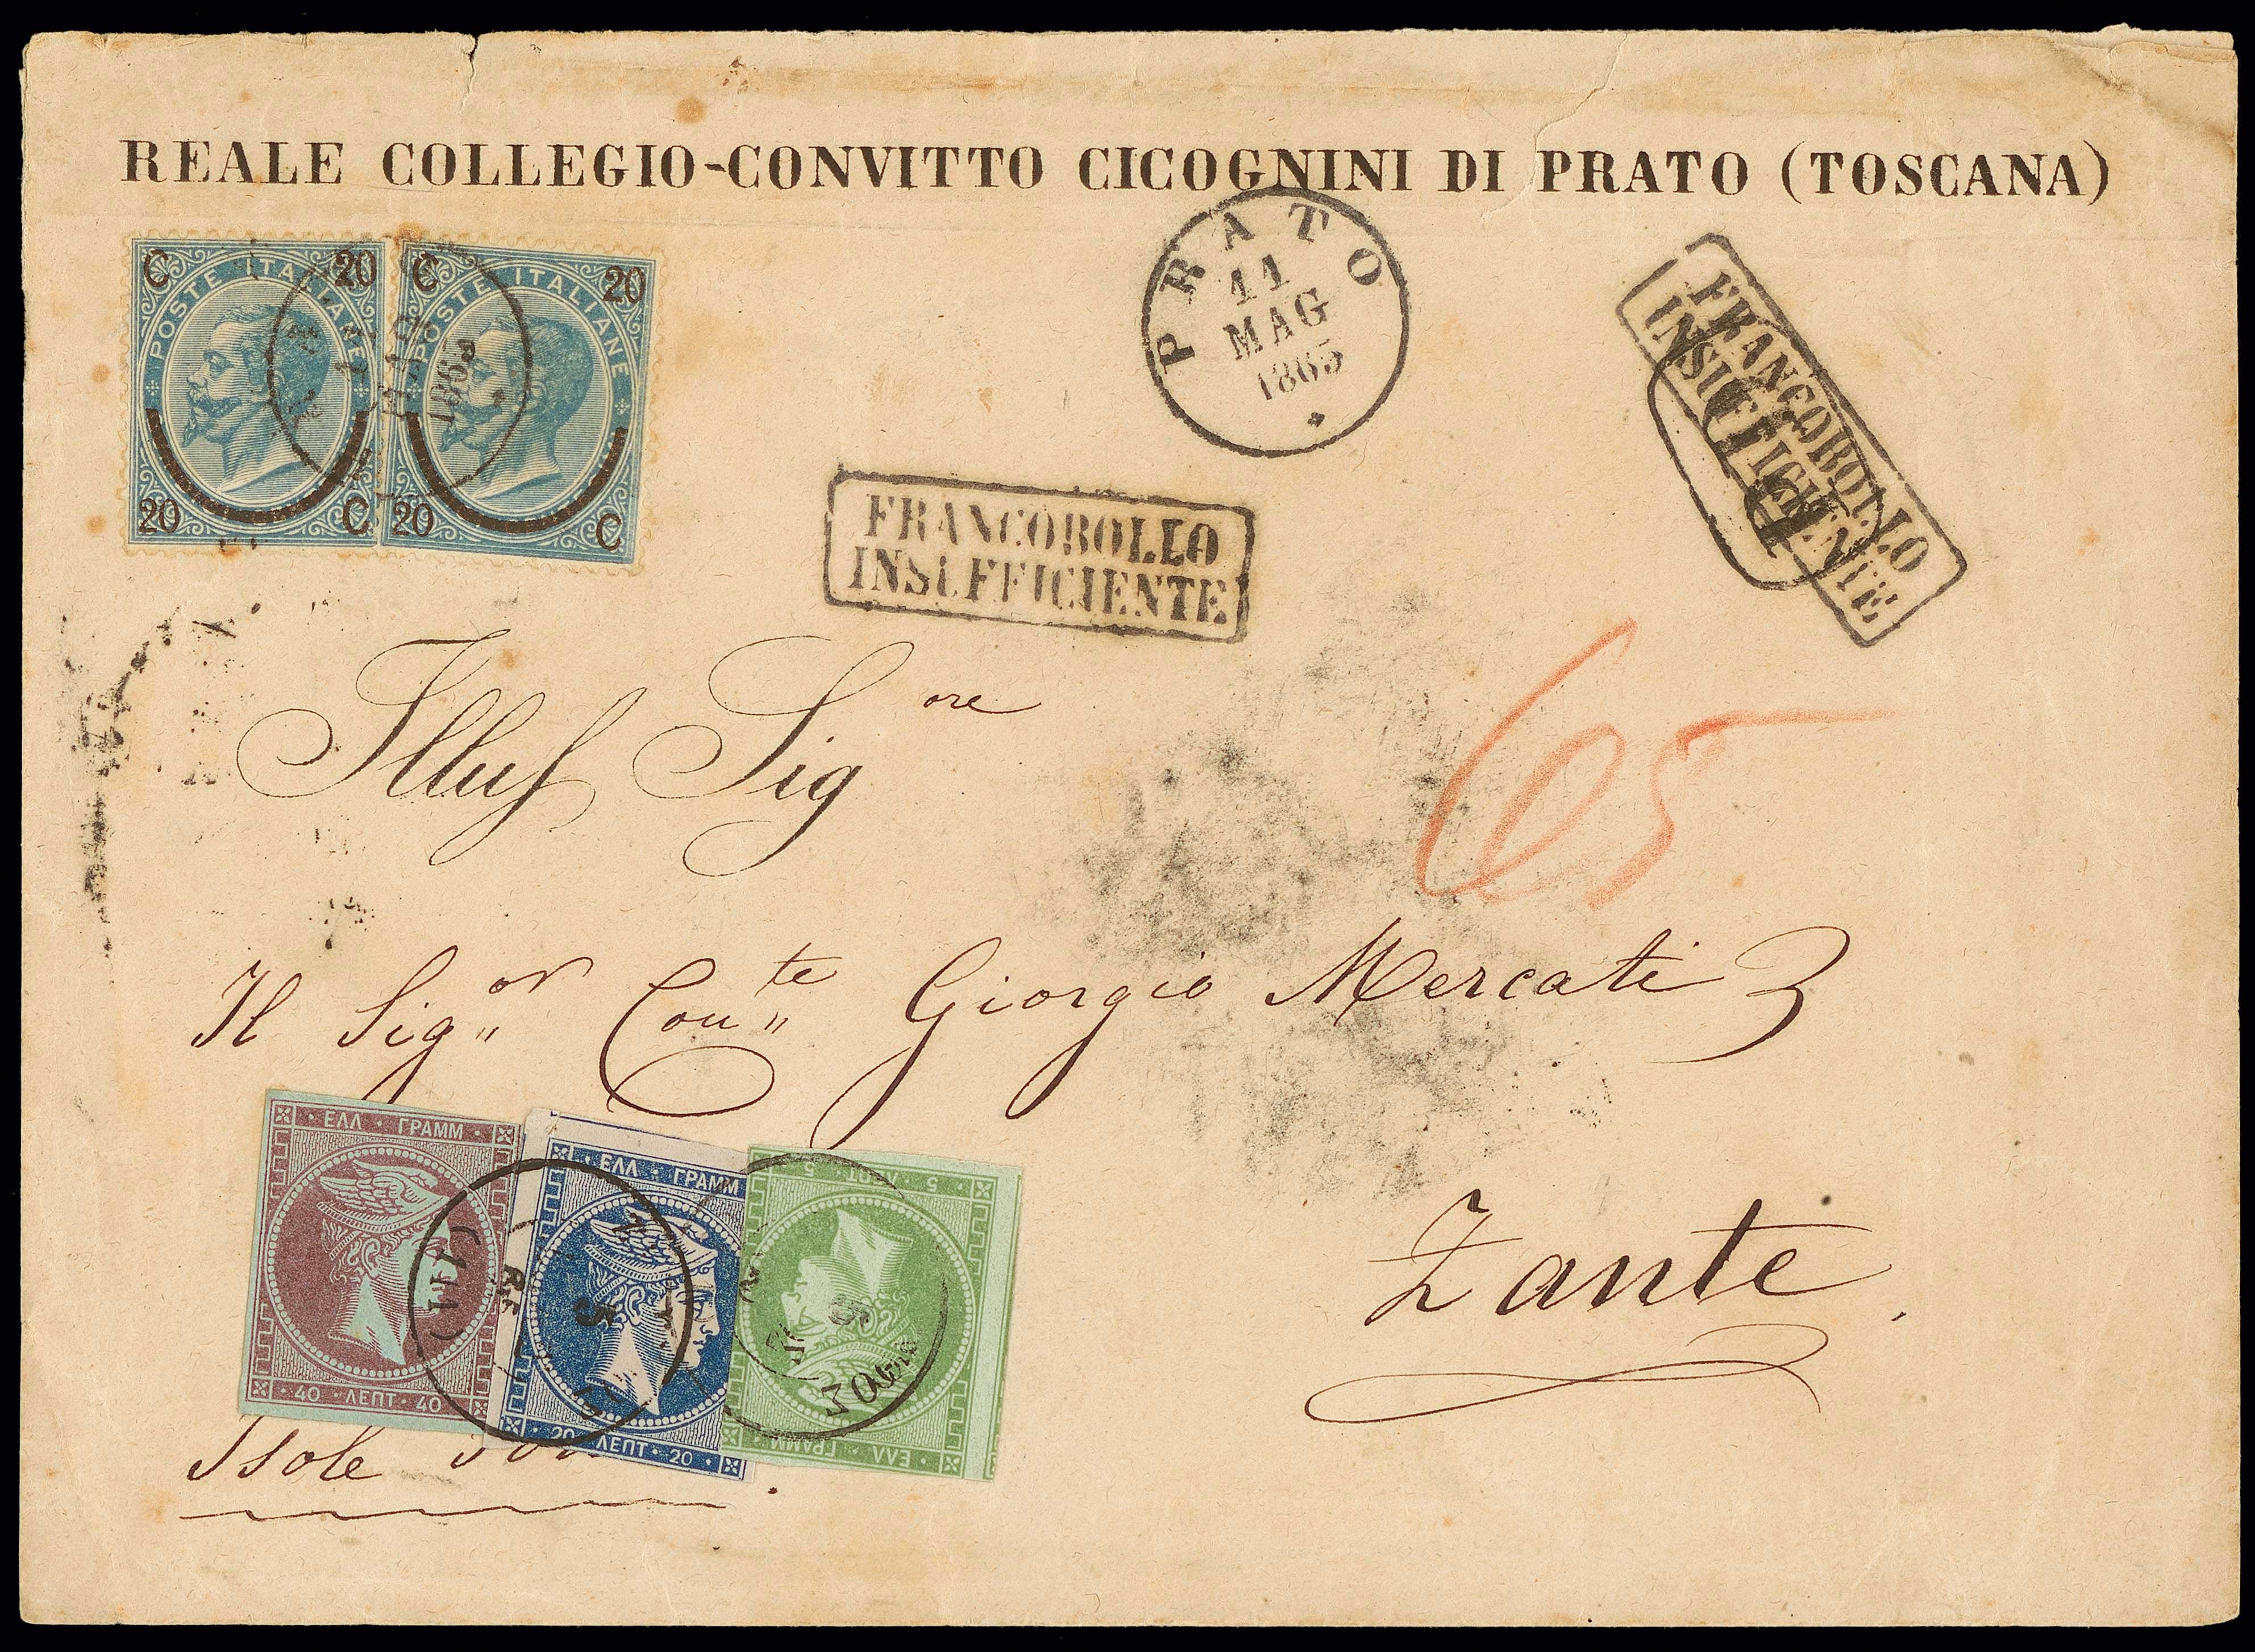 REALE COLLEGIO-CONVITTO CICOGNINI DI PRATO (TOSCANA)
C 20
POSTE ITALIANE
20 C
C 20
POSTE ITALIANE
20 C
PRATO
11
MAG
1865
PRATO
11
MAG
1865
FRANCOBOLLO
INSUFFICIENTE
FRANCOBOLLO
INSUFFICIENTE
65
Illus Sig ore
Il Sig or Con te Giorgio Mercati
Zante
ΕΛΛ · ΓΡΑΜΜ
40 · ΛΕΠΤ · 40
ΕΛΛ · ΓΡΑΜΜ
20 · ΛΕΠΤ · 20
5 ΛΕΠΤ 5
ΕΛΛ · ΓΡΑΜΜ
5
Isole